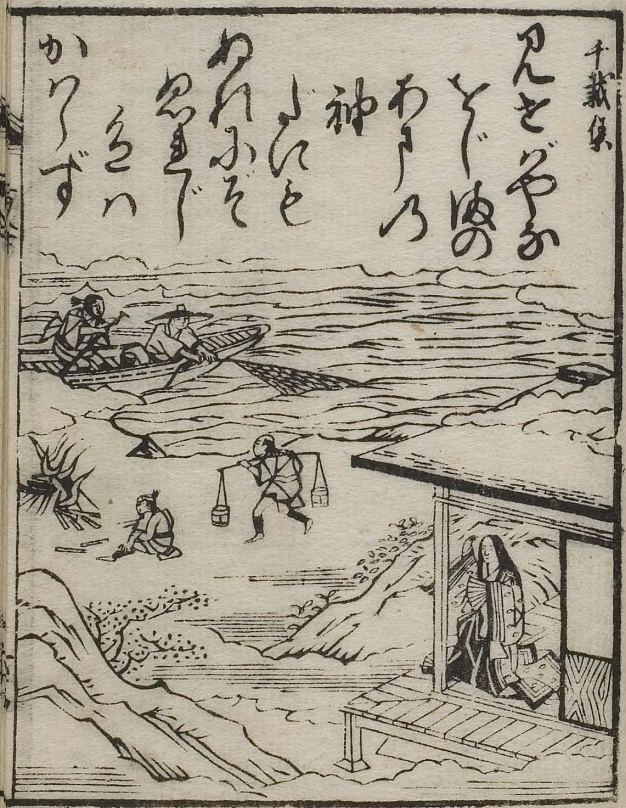 千載集
見せばやな
をじまの
あまの
袖
だにも
ぬれにぞ
ぬれし
色ハ
かハらず